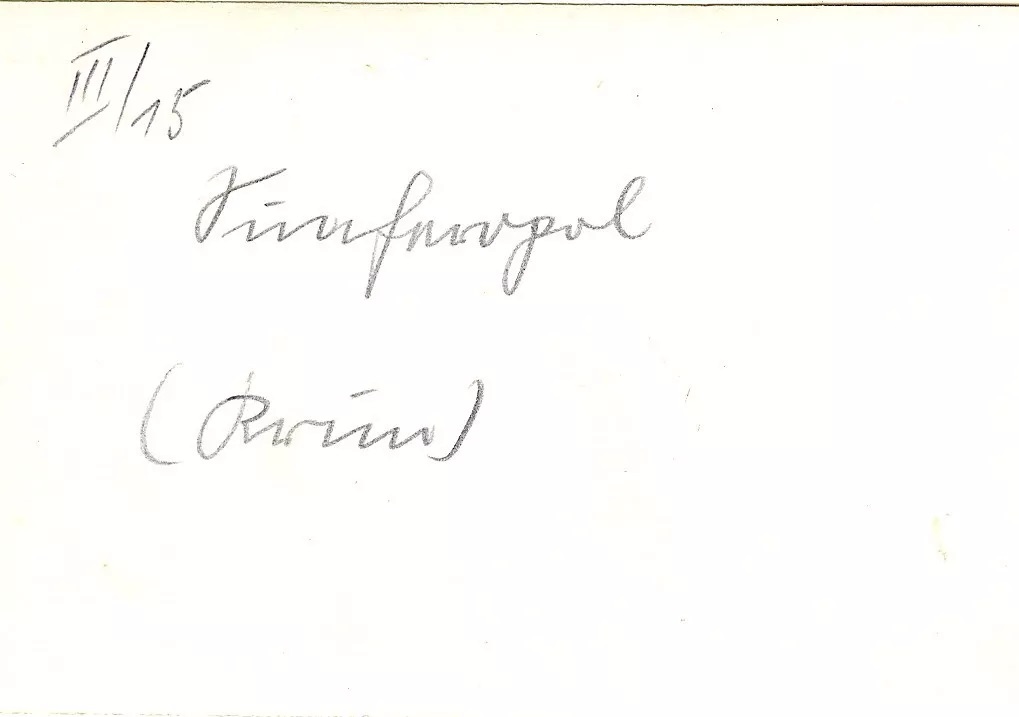 III/15
Simferopol
(Krim)